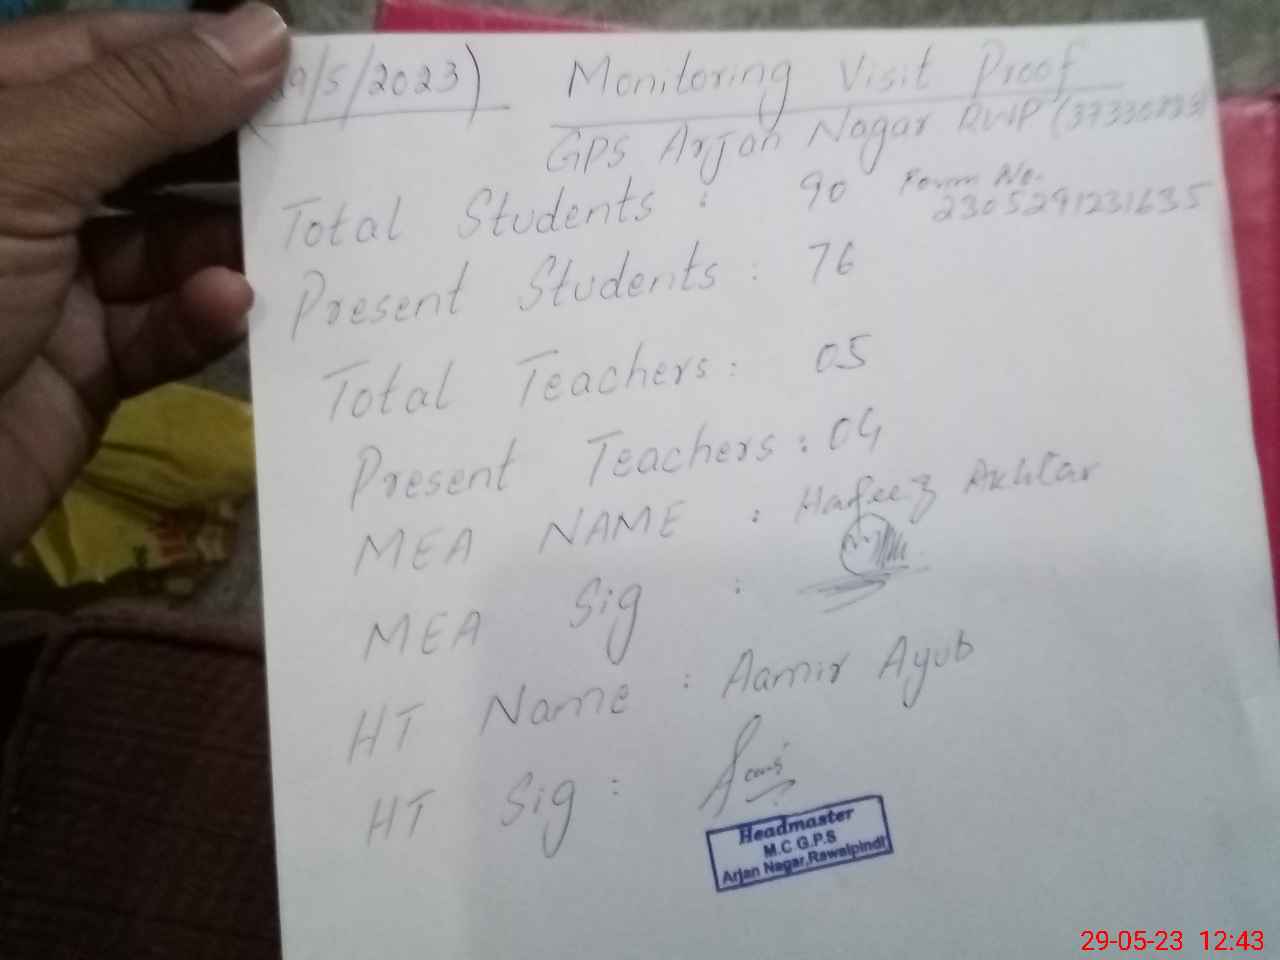 29/5/2023) Monitoring Visit Proof
GPS Arjan Nagar RWP
Total Students : 90 Form No.
2305291231635
Present Students : 76
Total Teachers : 05
Present Teachers : 04
MEA NAME : Hafeez Akhtar
MEA Sig :
HT Name : Aamir Ayub
HT Sig :
Headmaster
M.C G.P.S
Arjan Nagar,Rawalpindi
29-05-23 12:43